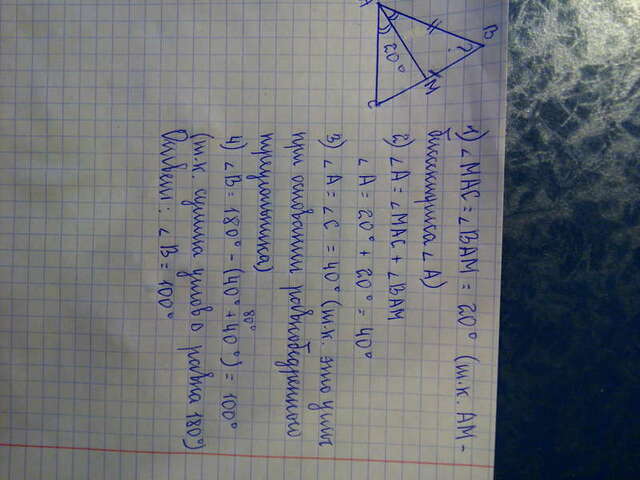 A
B
?
20°
M
C
1) ∠MAC = ∠BAM = 20° (т.к. AM -
биссектриса ∠A)
2) ∠A = ∠MAC + ∠BAM
∠A = 20° + 20° = 40°
3) ∠A = ∠C = 40° (т.к. это углы
при основании равнобедренного
треугольника)
80°
4) ∠B = 180° - (40° + 40°) = 100°
(т.к. сумма углов Δ равна 180°)
Ответ: ∠B = 100°